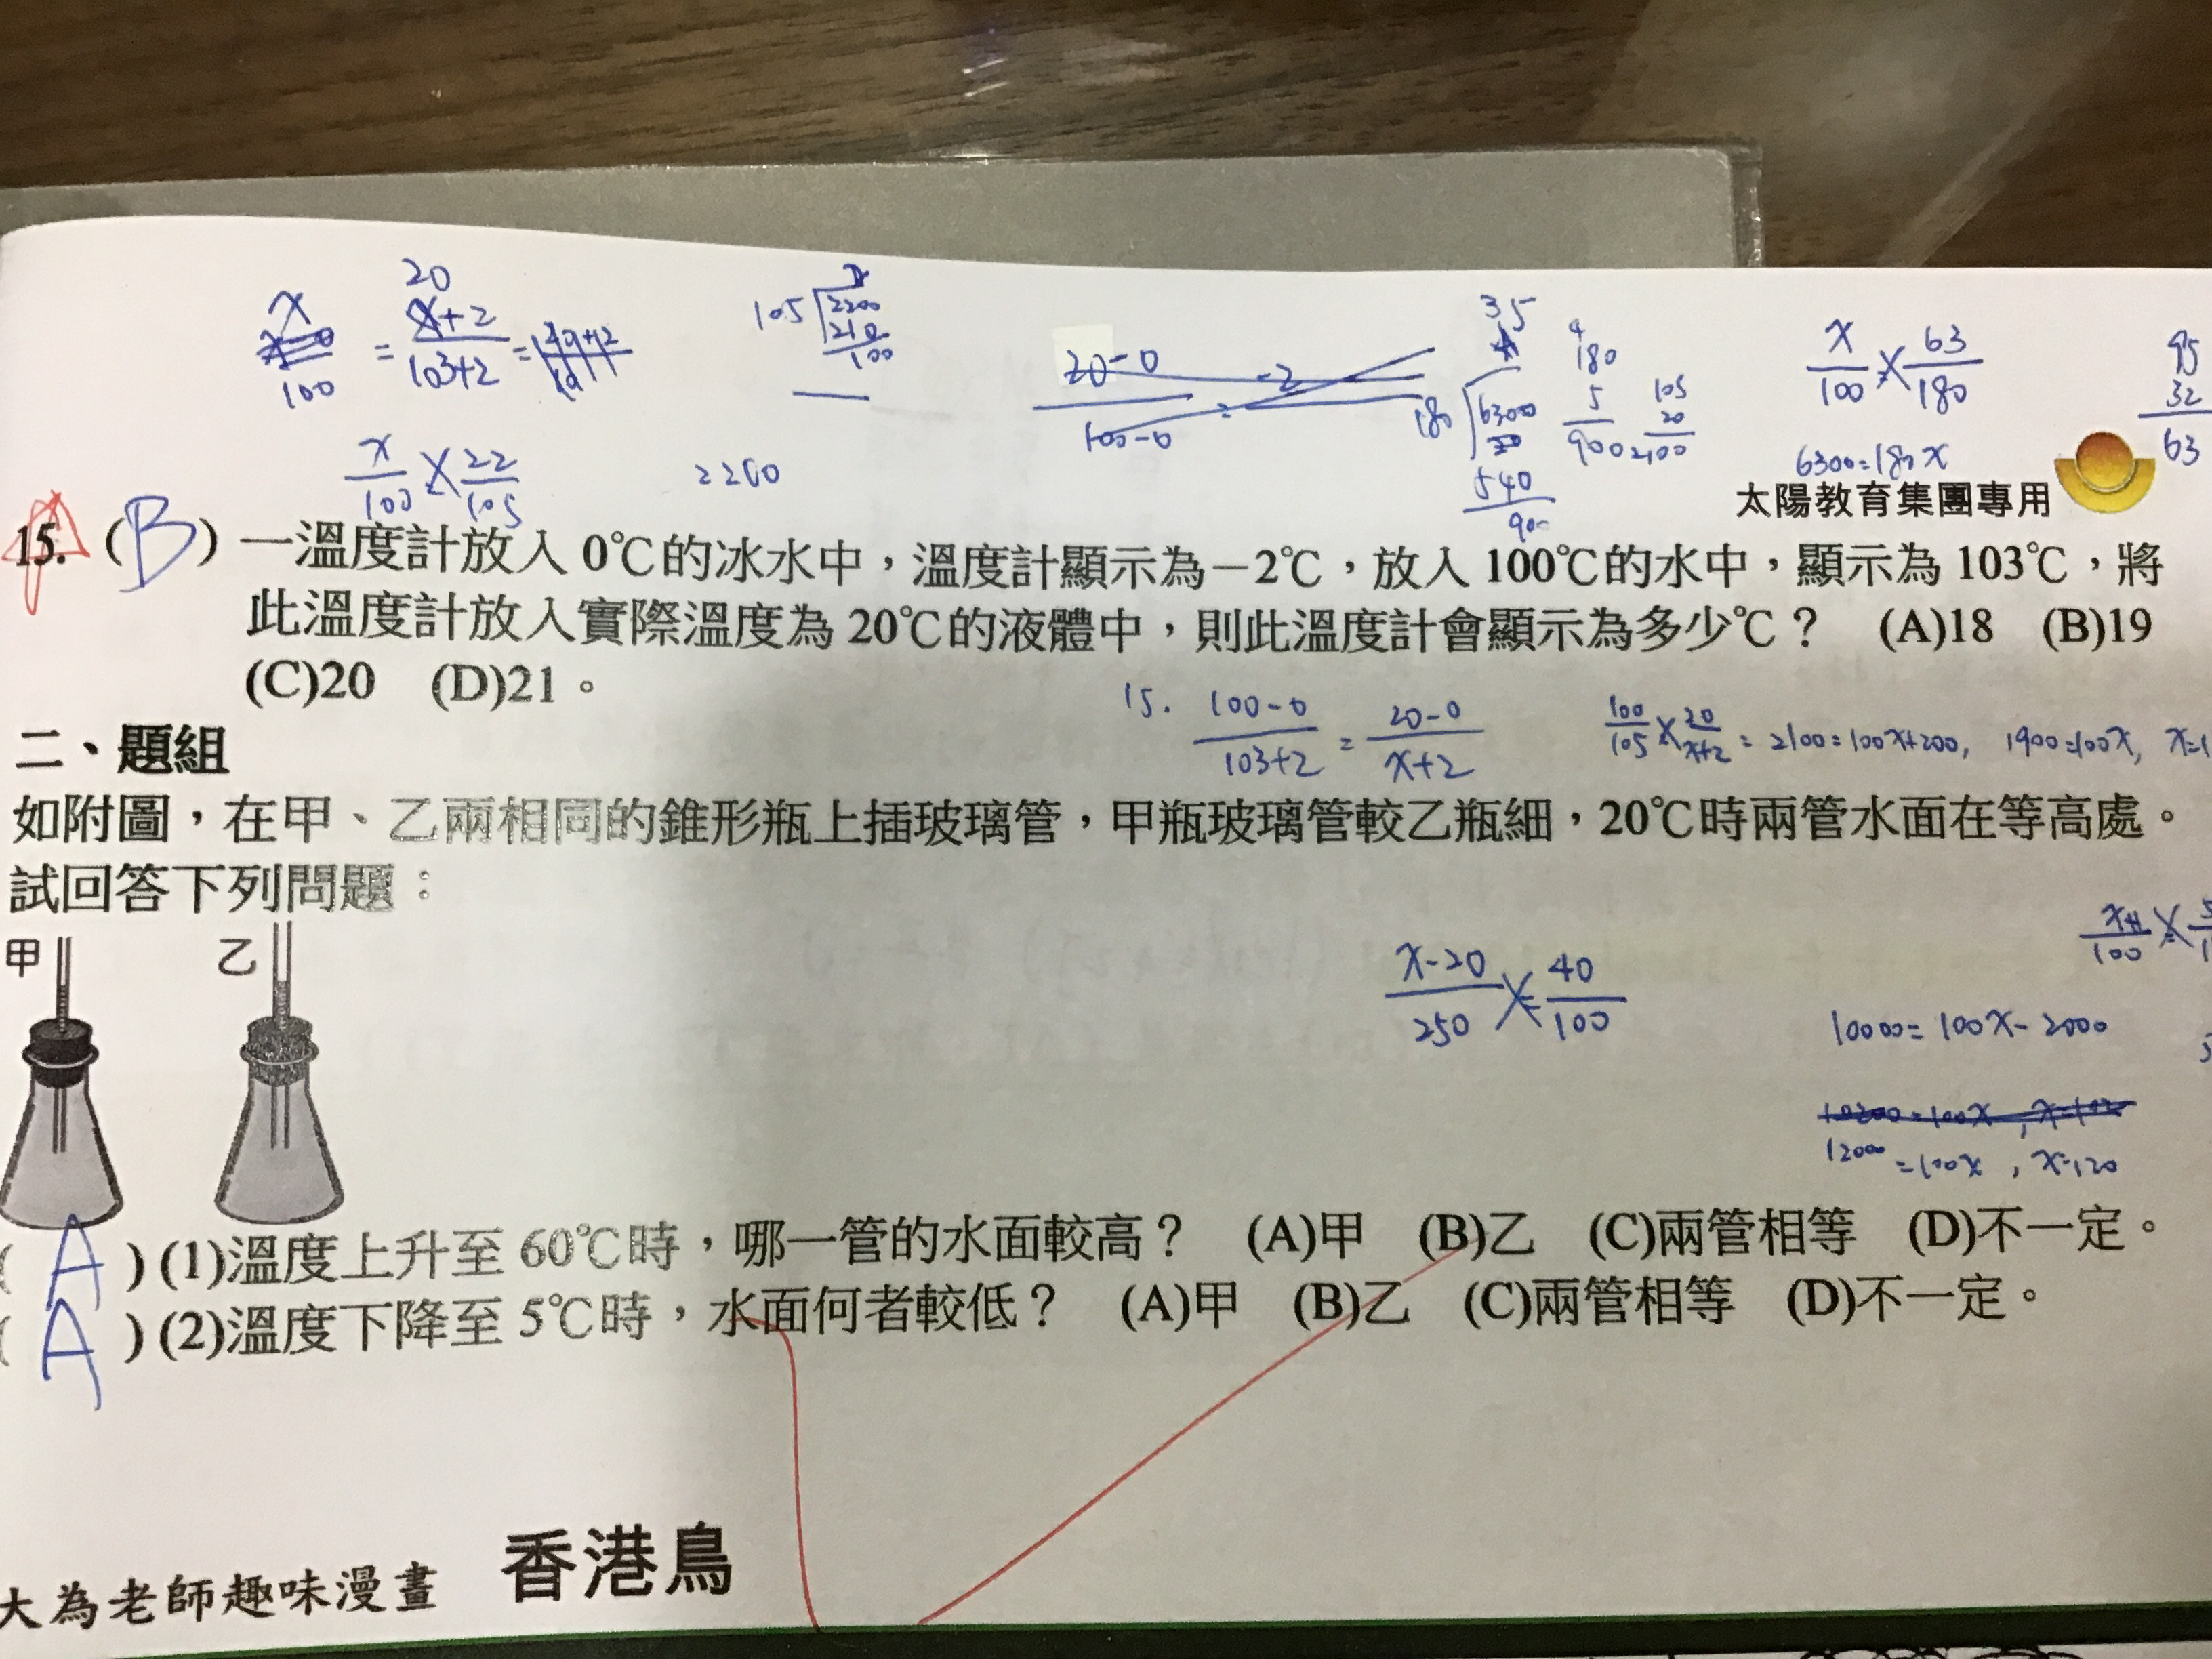 20
x
100
= x+2
103+2
=
105 2200
210
100
20-0
100-0
= -2
35
180 6300
540
900
4
180
5
900
105
20
2100
x/100 = 63/180
6300=180x
95
32
63
x/100 = 22/105
2200
太陽教育集團專用
15. (B) 一溫度計放入 0℃的冰水中,溫度計顯示為－2℃,放入 100℃的水中,顯示為 103℃,將
此溫度計放入實際溫度為 20℃的液體中,則此溫度計會顯示為多少℃? (A)18 (B)19
(C)20 (D)21。
15. 100-0/103+2 = 20-0/x+2
100/105 = 20/x+2 = 2100=100x+200, 1900=100x, x=1
二、題組
如附圖,在甲、乙兩相同的錐形瓶上插玻璃管,甲瓶玻璃管較乙瓶細,20℃時兩管水面在等高處。
試回答下列問題:
甲 乙
x-20/250 = 40/100
100
10000=100x-2000
10200=100x, x=102
12000=100x, x=120
( A ) (1)溫度上升至 60℃時,哪一管的水面較高? (A)甲 (B)乙 (C)兩管相等 (D)不一定。
( A ) (2)溫度下降至 5℃時,水面何者較低? (A)甲 (B)乙 (C)兩管相等 (D)不一定。
大為老師趣味漫畫 香港鳥